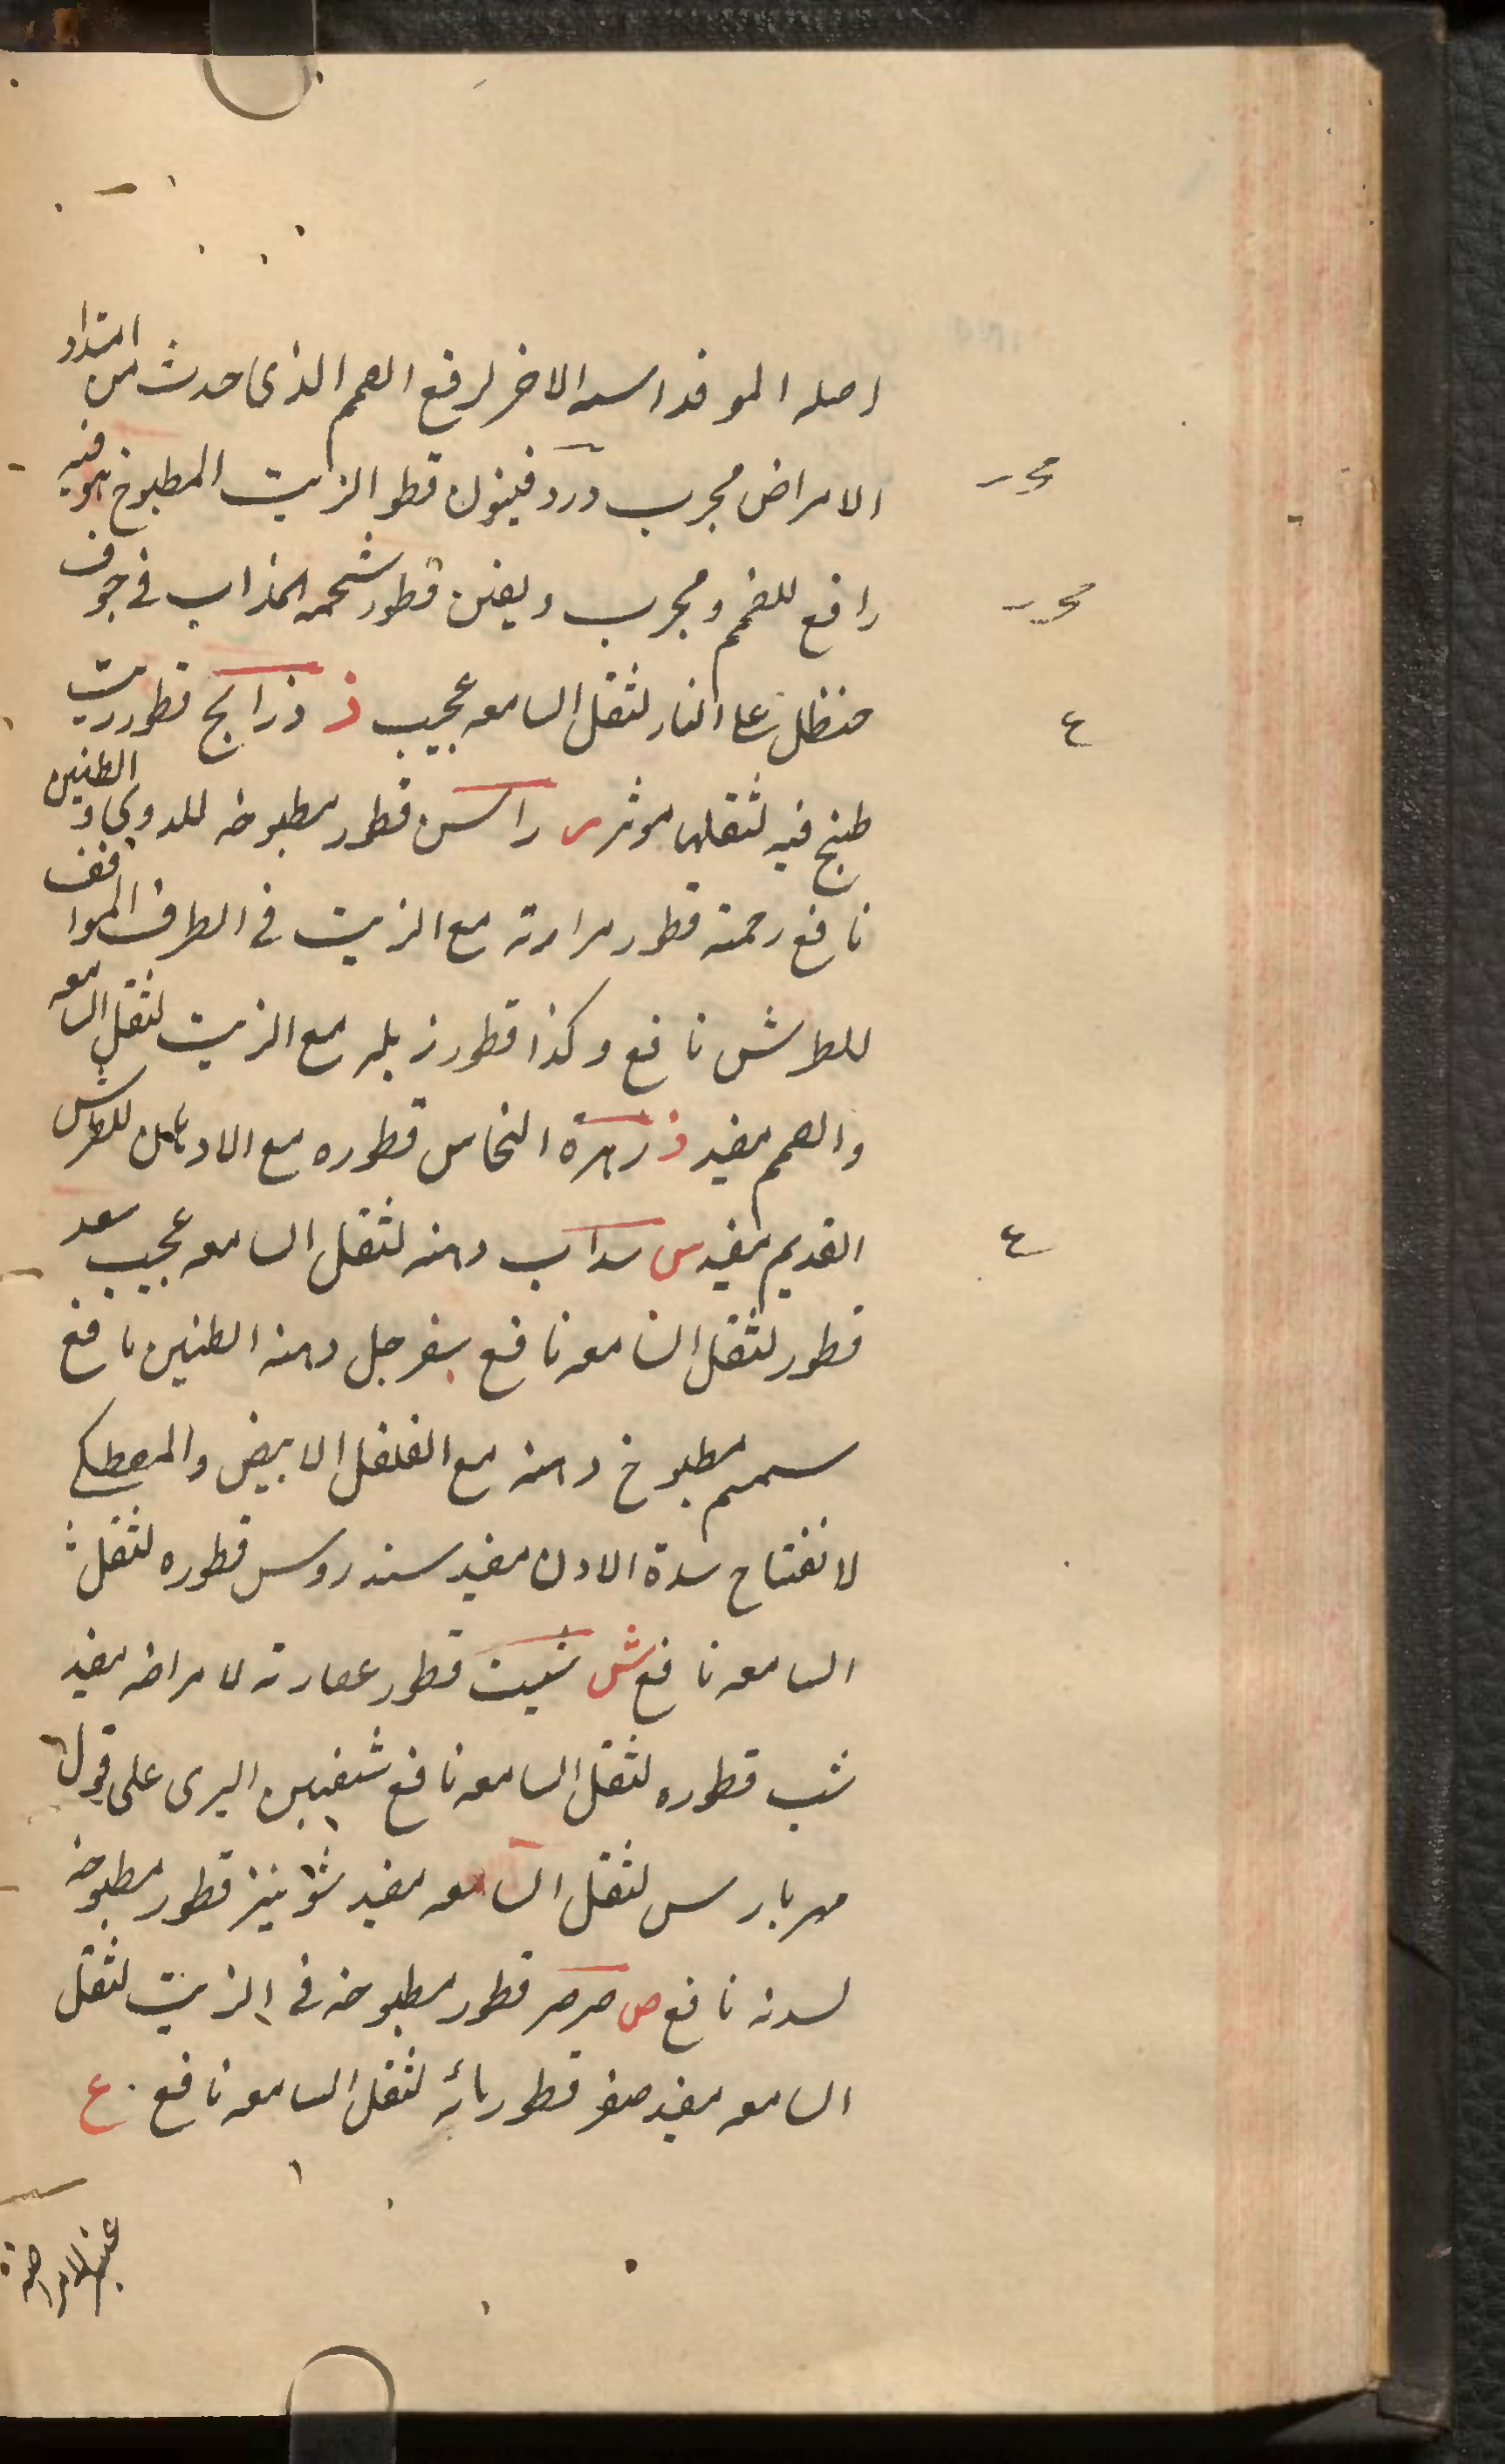 اصله الموقد اسه الاخر لرفع الصمم الذى حدث من امتداد
الامراض مجرب قطور الزيت المطبوخ هو فيه
رافع للصمم ومجرب قطور شحمه المذاب فى جوف
حنظل على النار لثقل السامعه عجيب ذ ذرايح قطور زيت
طبخ فيه لثقلها موثر ر راسن قطور مطبوخه للدوى والطنين
نافع رحمة قطور مرارته مع الزيت فى الطرف الموافف
للطرش نافع وكذا قطور زبله مع الزيت لثقل السامعه
والصمم مفيد ز زهرة النحاس قطوره مع الادهان للطرش
القديم مفيد س سداب دهنه لثقل السامعه عجيب سعد
قطور لثقل السامعه نافع سفرجل دهنه الطنين نافع
سمسم مطبوخ دهنه مع الفلفل الابيض والمصطكى
لانفتاح سدة الاذن مفيد سندروس قطوره لثقل
السامعه نافع ش شبت قطور عصارته لامراضه مفيد
شب قطوره لثقل السامعه نافع شفنين البرى على قول
مهربارس لثقل السامعه مفيد شونيز قطور مطبوخه
لسدته نافع ص صرصر قطور مطبوخه فى الزيت لثقل
السامعه مفيد صفر قطور مائه لثقل السامعه نافع ع